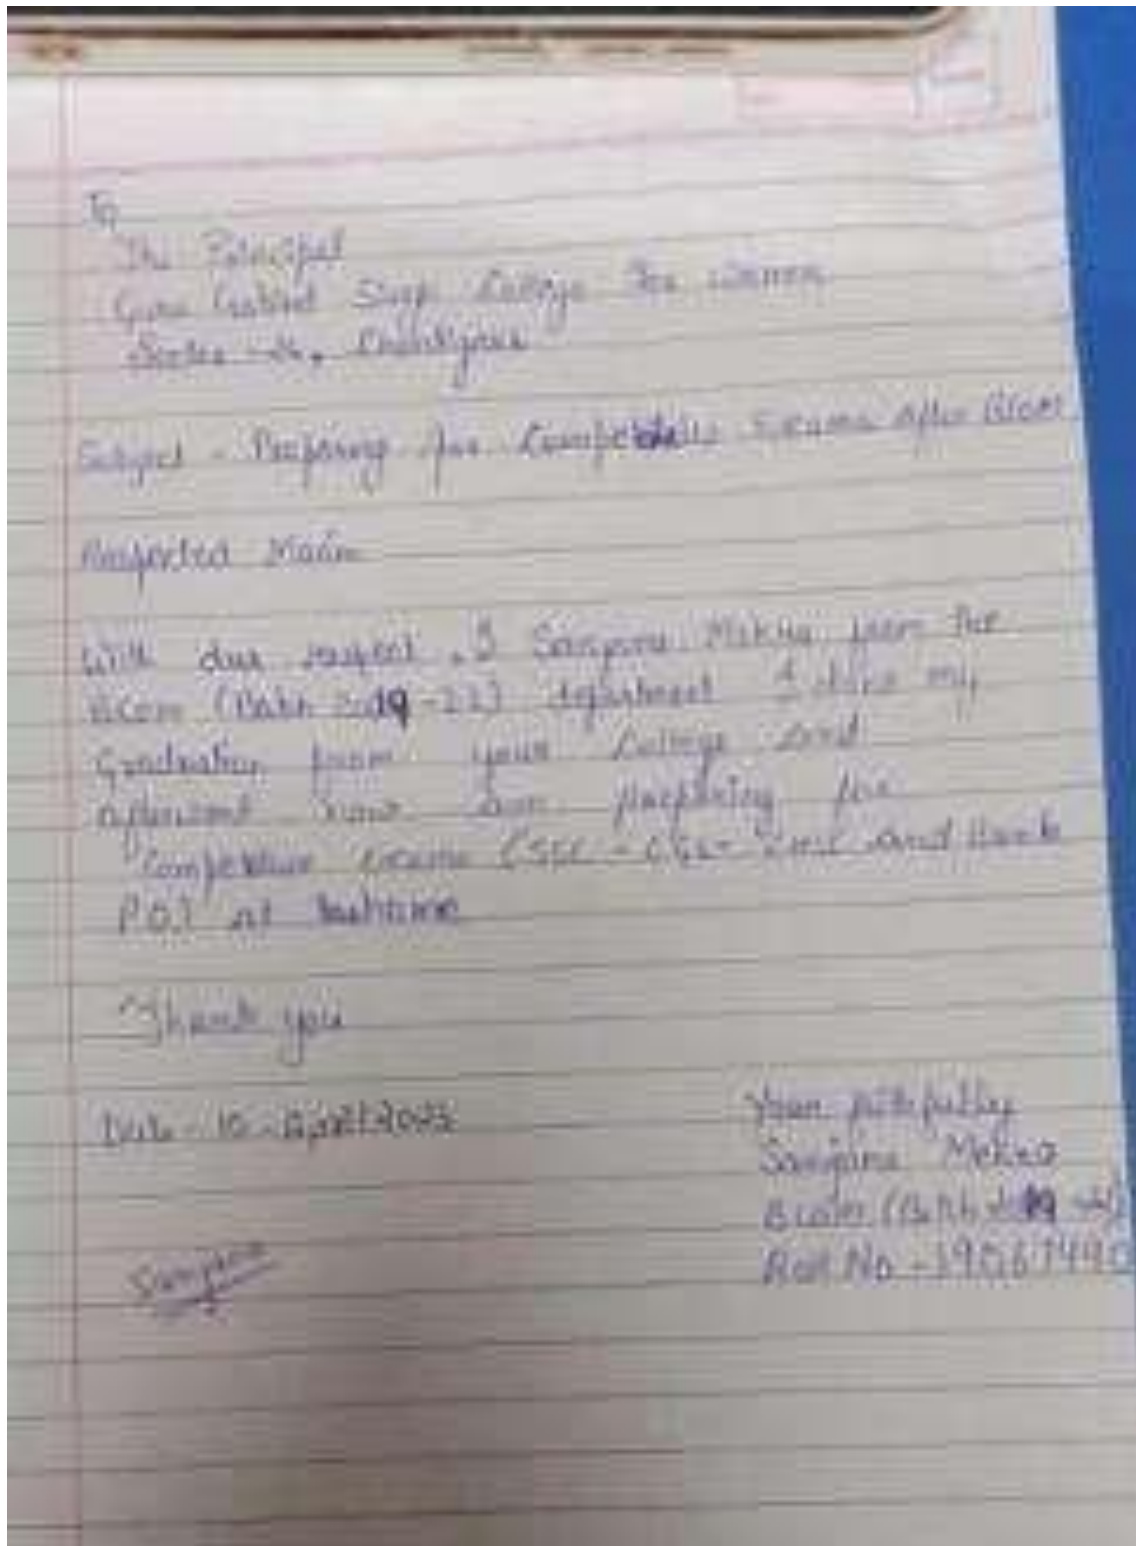 To
The Principal
Guru Gobind Singh College For Women
Sector - 26, Chandigarh
Subject - Preparing for Competitive Exams After BCom
Respected Ma'am
With due respect, I Sanjana Mehra from the
BCom (Batch 2019-22) department I done my
Graduation from your College and
now am preparing for
Competitive exams (SSC - CGL and Bank
P.O.) at
Thank you
Date - 10 - April 2023
Your faithfully
Sanjana Mehra
BCom (Batch 2019
Roll No -
Sanjana